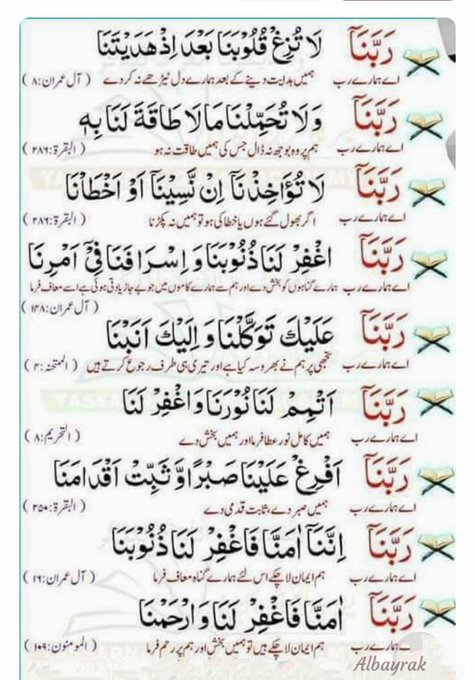 رَبَّنَآ لَا تُزِغْ قُلُوْبَنَا بَعْدَ اِذْ هَدَيْتَنَا
اے ہمارے رب ہمیں ہدایت دینے کے بعد ہمارے دل ٹیڑھے نہ کر دے ( آل عمران:۸ )
رَبَّنَآ وَلَا تُحَمِّلْنَا مَا لَا طَاقَةَ لَنَا بِهٖ
اے ہمارے رب ہم پر وہ بوجھ نہ ڈال جس کی ہمیں طاقت نہ ہو ( البقرة:۲۸۶ )
رَبَّنَآ لَا تُؤَاخِذْنَآ اِنْ نَّسِيْنَآ اَوْ اَخْطَاْنَا
اے ہمارے رب اگر بھول گئے ہوں یا خطا کی ہو تو ہمیں نہ پکڑنا ( البقرة:۲۸۶ )
رَبَّنَآ اغْفِرْ لَنَا ذُنُوْبَنَا وَ اِسْرَافَنَا فِيْٓ اَمْرِنَا
اے ہمارے رب ہمارے گناہوں کو بخش دے اور ہم سے ہمارے کاموں میں جو بے جا زیادتی ہوئی ہے اسے معاف فرما
( آل عمران:۱۴۸ )
رَبَّنَآ عَلَيْكَ تَوَكَّلْنَا وَ اِلَيْكَ اَنَبْنَا
اے ہمارے رب تجھی پر ہم نے بھروسہ کیا ہے اور تیری ہی طرف رجوع کرتے ہیں ( الممتحنة:۴ )
رَبَّنَآ اَتْمِمْ لَنَا نُوْرَنَا وَ اغْفِرْ لَنَا
اے ہمارے رب ہمیں کامل نور عطا فرما اور ہمیں بخش دے ( التحریم:۸ )
رَبَّنَآ اَفْرِغْ عَلَيْنَا صَبْرًا وَّ ثَبِّتْ اَقْدَامَنَا
اے ہمارے رب ہمیں صبر دے، ثابت قدمی دے ( البقرة:۲۵۰ )
رَبَّنَآ اِنَّنَآ اٰمَنَّا فَاغْفِرْ لَنَا ذُنُوْبَنَا
اے ہمارے رب ہم ایمان لا چکے اس لئے ہمارے گناہ معاف فرما ( آل عمران:۱۶ )
رَبَّنَآ اٰمَنَّا فَاغْفِرْ لَنَا وَ ارْحَمْنَا
ہمارے رب ہم ایمان لا چکے ہیں تو ہمیں بخش اور ہم پر رحم فرما ( المومنون:۱۰۹ )
Albayrak